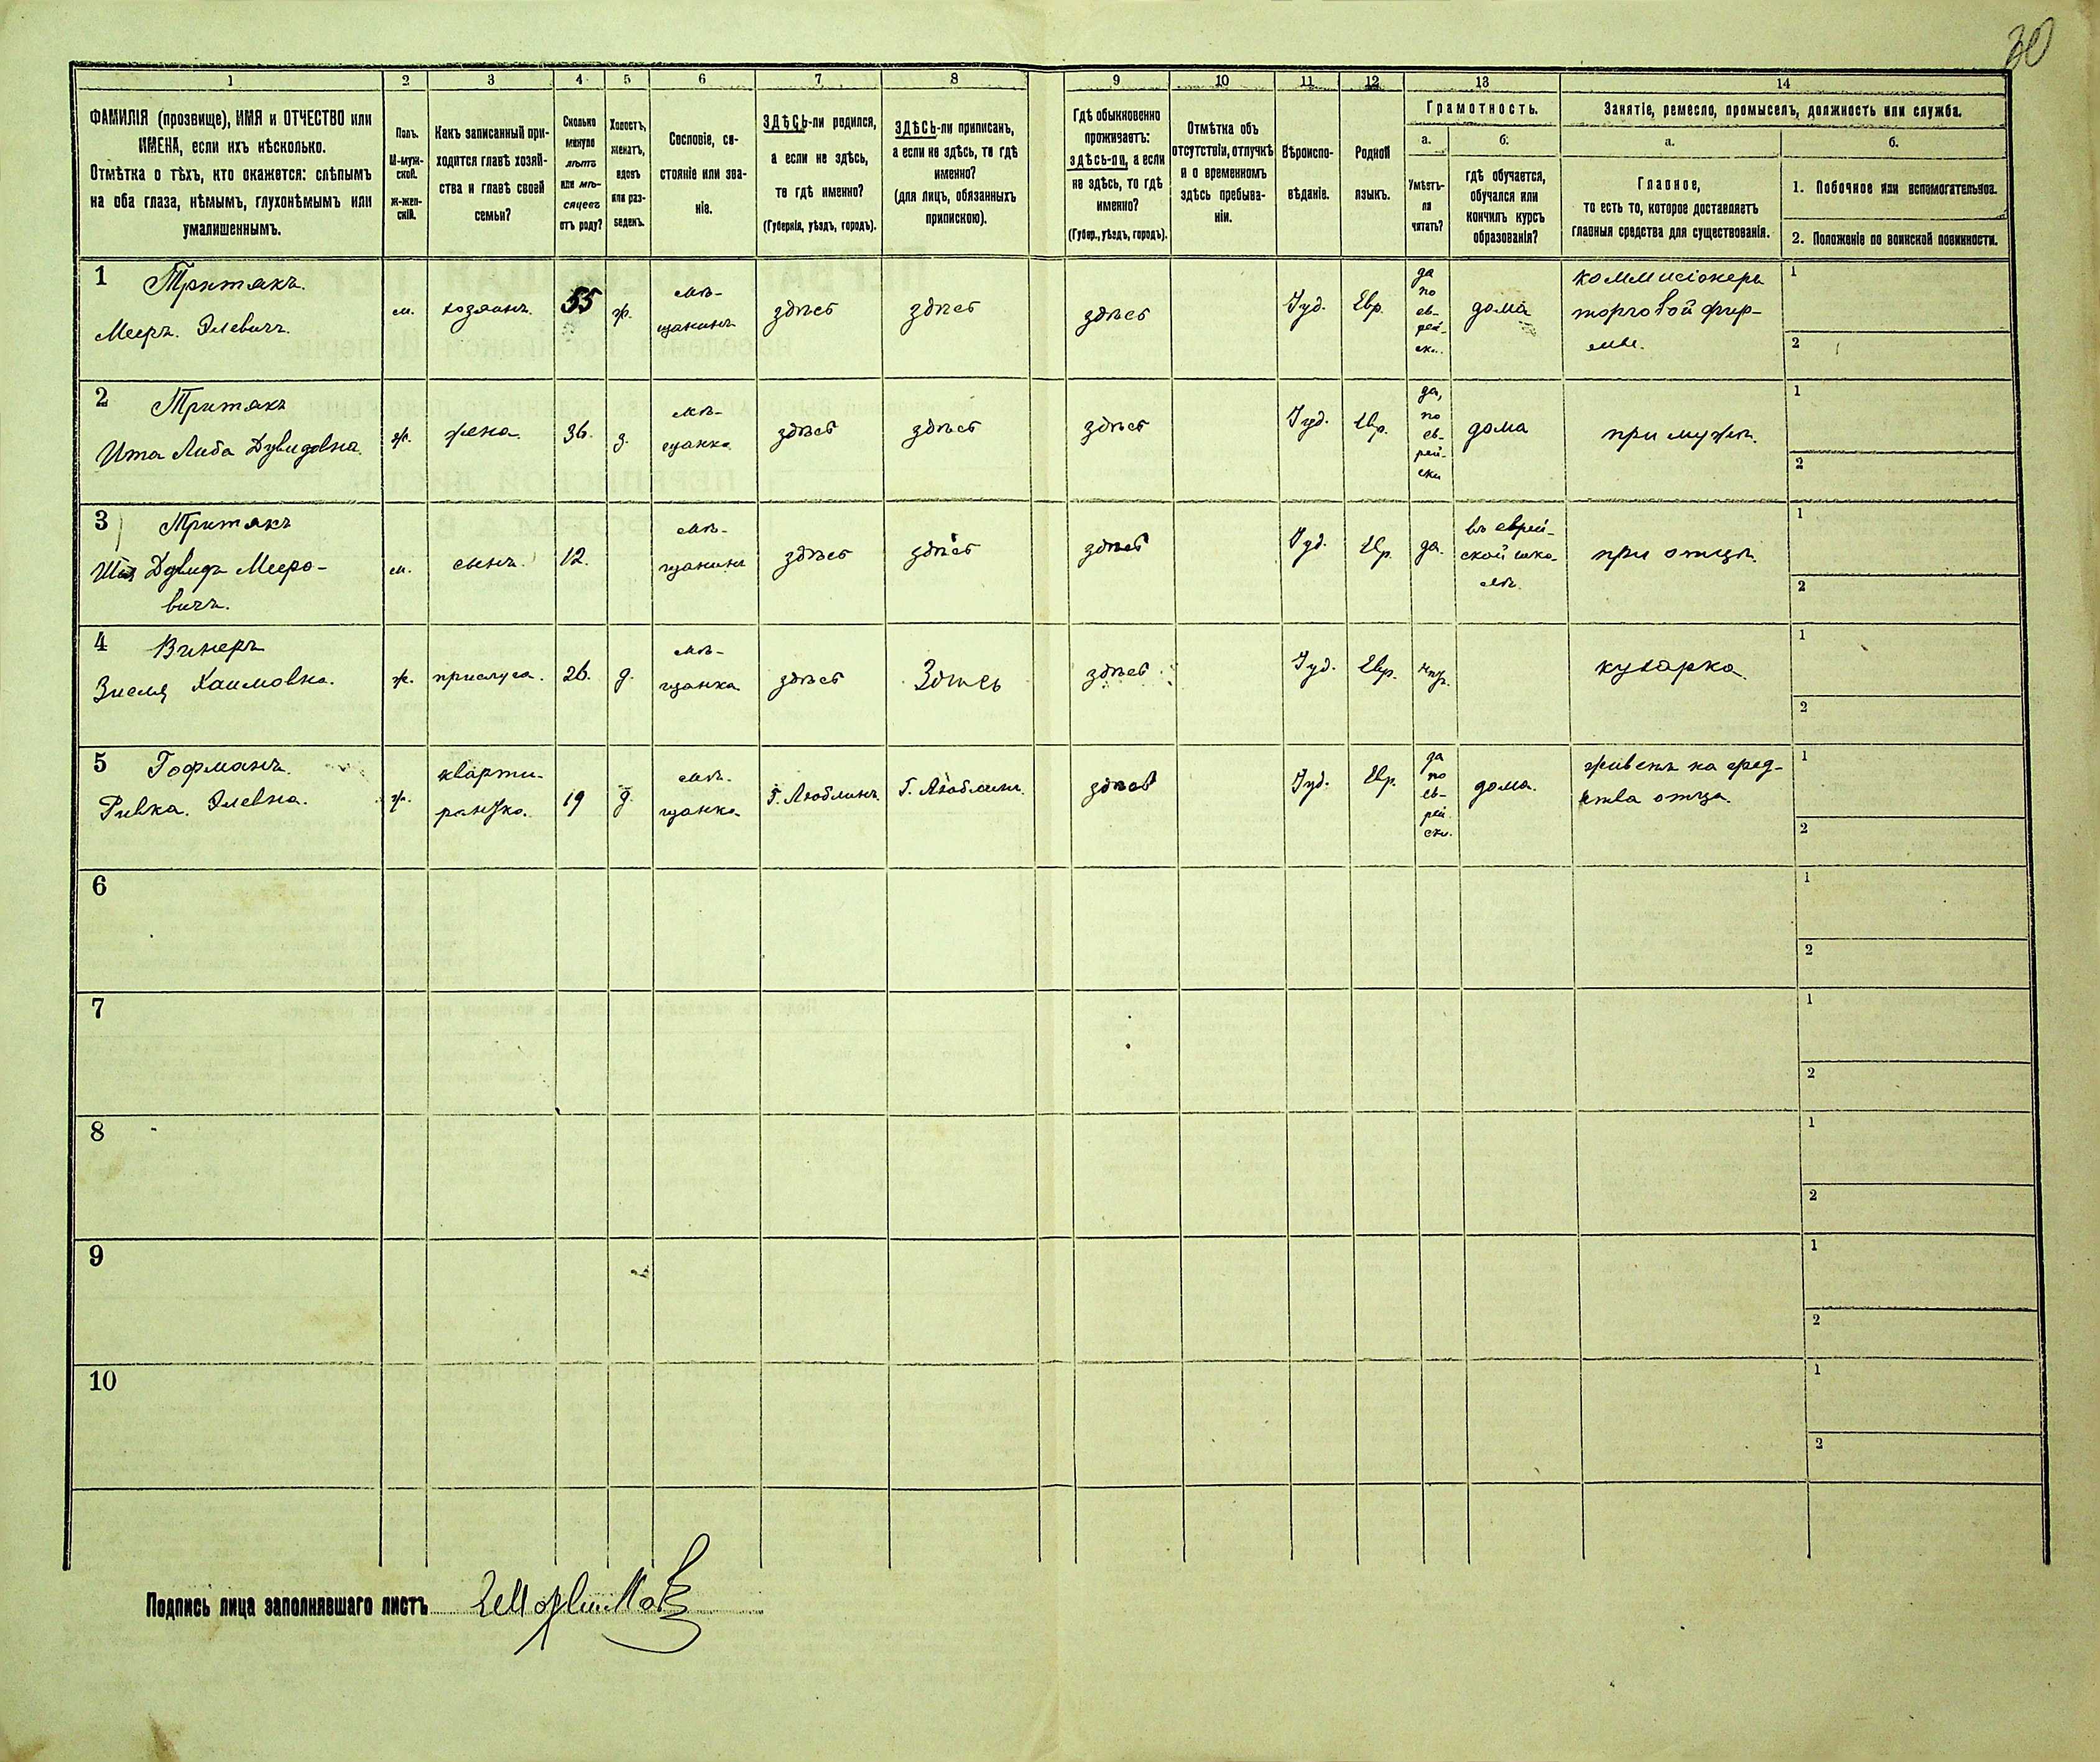 30
1 2 3 4 5 6 7 8 9 10 11 12 13 14
ФАМИЛІЯ (прозвище), ИМЯ и ОТЧЕСТВО или
ИМЕНА, если ихъ нѣсколько.
Отмѣтка о тѣхъ, кто окажется: слѣпымъ
на оба глаза, нѣмымъ, глухонѣмымъ или
умалишеннымъ.
Полъ.
М-муж-
ской.
Ж-жен-
скій.
Какъ записанный при-
ходится главѣ хозяй-
ства и главѣ своей
семьи?
Сколько
минуло
лѣтъ
или мѣ-
сяцевъ
отъ роду?
Холостъ,
женатъ,
вдовъ
или раз-
веденъ.
Сословіе, со-
стояніе или зва-
ніе.
ЗДѢСЬ-ли родился,
а если не здѣсь,
то гдѣ именно?
(Губернія, уѣздъ, городъ).
ЗДѢСЬ-ли приписанъ,
а если не здѣсь, то гдѣ
именно?
(для лицъ, обязанныхъ
припискою).
Гдѣ обыкновенно
проживаетъ:
здѣсь-ли, а если
не здѣсь, то гдѣ
именно?
(Губер., уѣздъ, городъ).
Отмѣтка объ
отсутствіи, отлучкѣ
и о временномъ
здѣсь пребыва-
ніи.
Вѣроиспо-
вѣданіе.
Родной
языкъ.
Грамотность.
а.
Умѣетъ-
ли
читать?
б.
гдѣ обучается,
обучался или
кончилъ курсъ
образованія?
Занятіе, ремесло, промыселъ, должность или служба.
а.
Главное,
то есть то, которое доставляетъ
главныя средства для существованія.
б.
1. Побочное или вспомогательное.
2. Положеніе по воинской повинности.
1 Тритякъ.
Мееръ. Элевичъ.
м.
хозяинъ.
55
ж.
мѣ-
щанинъ
здѣсь
здѣсь
здѣсь
Іуд.
Евр.
да
по
ев-
рей-
ски.
дома
коммисіонеръ
торговой фир-
мы.
1
2
2 Тритякъ
Ита Либа Дувидовна.
ж.
жена.
36.
з.
мѣ-
щанка
здѣсь
здѣсь
здѣсь
Іуд.
Евр.
да,
по
ев-
рей-
ски
дома
при мужѣ.
1
2
3 Тритякъ
Дувидъ Мееро-
вичъ.
м.
сынъ.
12.
мѣ-
щанинъ
здѣсь
здѣсь
здѣсь
Іуд.
Евр.
да.
въ еврей-
ской шко-
лѣ.
при отцѣ.
1
2
4 Винеръ
Зисля Хаимовна.
ж.
прислуга.
26.
д.
мѣ-
щанка
здѣсь
Здѣсь
здѣсь
Іуд.
Евр.
нѣт.
кухарка.
1
2
5 Гофманъ.
Ривка. Элевна.
ж.
кварти-
рантка.
19
д.
мѣ-
щанка.
Г. Люблинъ.
Г. Люблинъ.
здѣсь
Іуд.
Евр.
да
по
ев-
рей
ски.
дома.
живетъ на сред-
ства отца.
1
2
6
1
2
7
1
2
8
1
2
9
1
2
10
1
2
Подпись лица заполнявшаго листъ